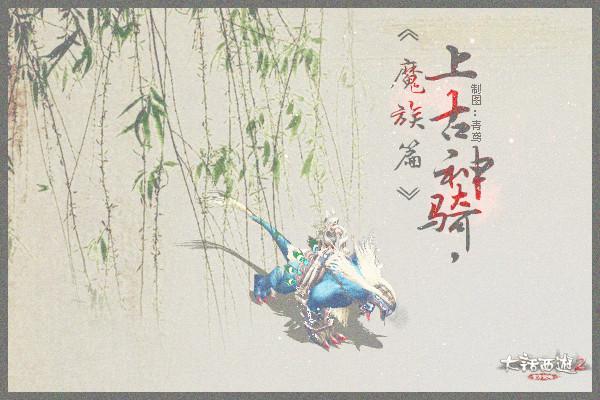 上古神骑，
《魔族篇》
制图：青鸾
大话西游2